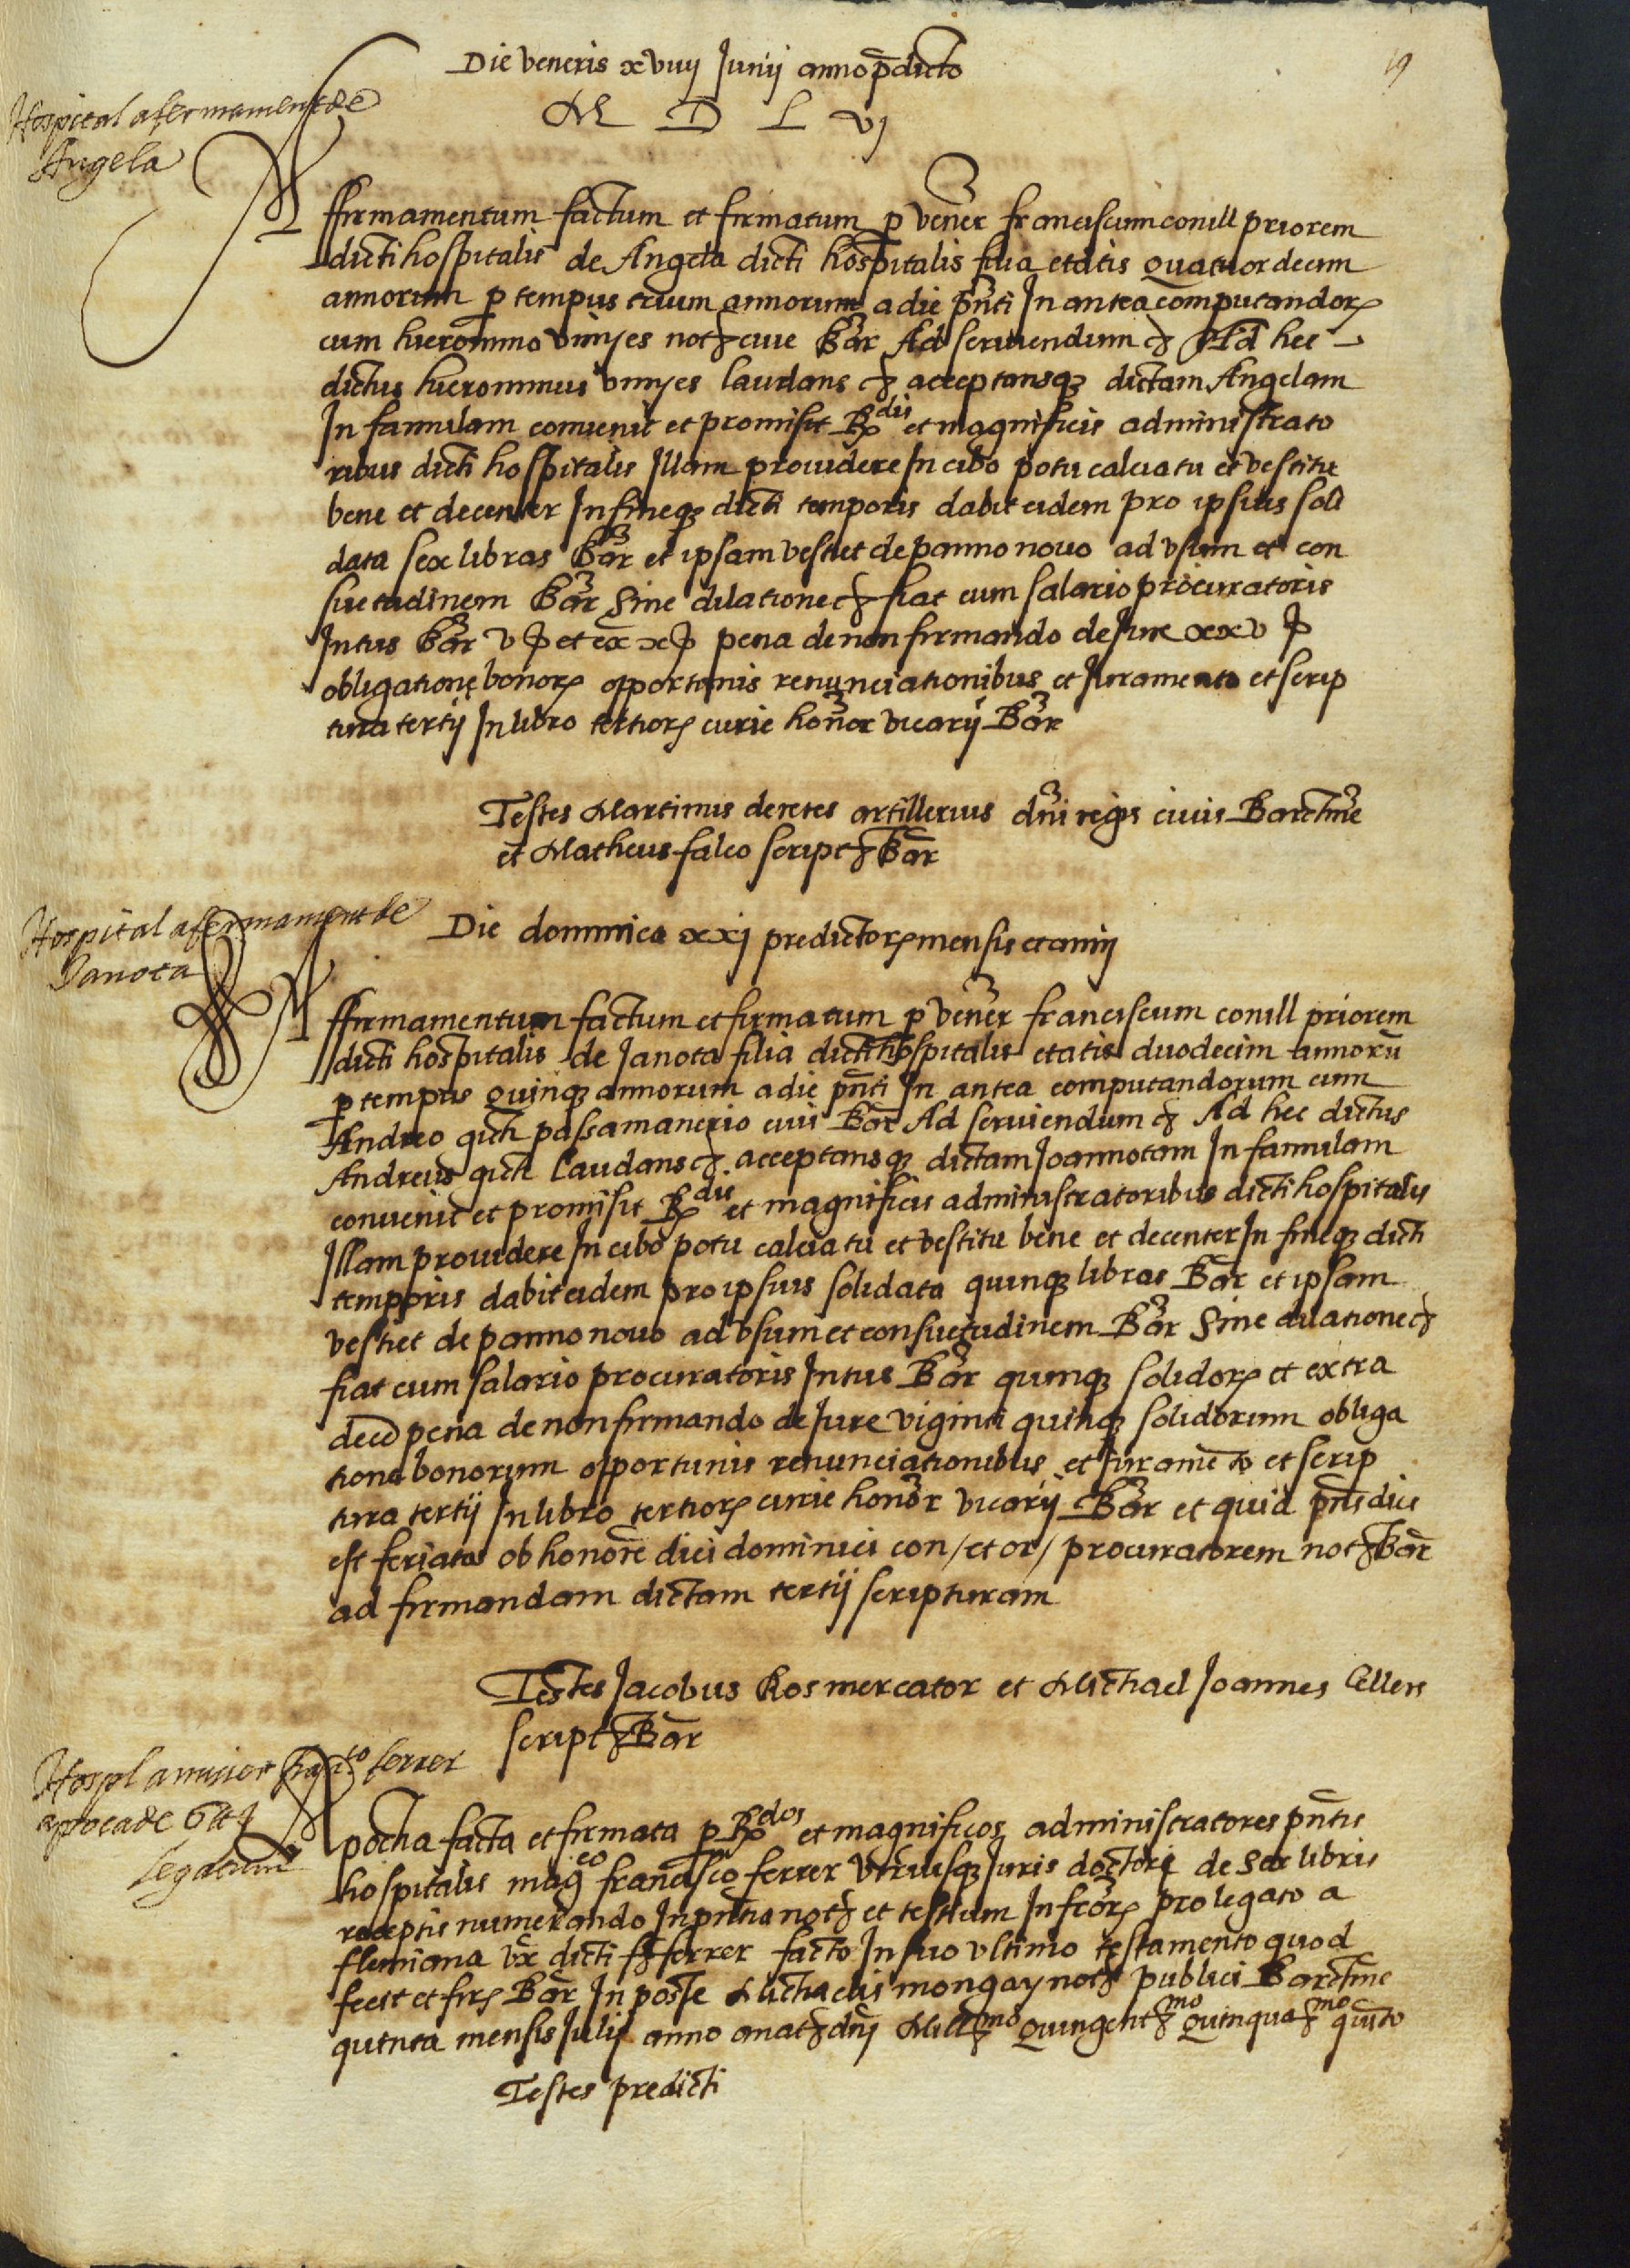 19
Die veneris xviiij Junij anno p̄dicto
M D L vj
Hospital afermament de
Angela
Affirmamentum factum et firmatum p vener franciscum conill priorem
dicti hospitalis de Angela dicti hospitalis filia etatis quatuordecim
annorum p tempus trium annorum a die pñti In antea computandorꝝ
cum hieronimo vinyes not ciue Bar Ad seruiendum &c Ad hec
dictus hieronimus vinyes laudans &c acceptansqꝫ dictam Angelam
In famulam conuenit et promisit Rdis et magnificis administrato
ribus dicti hospitalis Illam prouidere In cibo potu calciatu et vestitu
bene et decenter In fineqꝫ dicti temporis dabit eidem pro ipsius soli
data sex libras Bar et ipsam vestiet de panno nouo ad vsum et con
suetudinem Bar Sine dilatione &c fiat cum salario procuratoris
Intus Bar v ß et ex x ß pena de non firmando de Jure xxv ß
obligatione bonorꝝ opportunis renunciationibus et Juramento et scrip
tura tertij In libro tertiorꝝ curie honor vicarij Bar
Testes Martinus deretes artillerius dñi regis ciuis Barctme
et Matheus falco script Bar
Hospital afermament de
Janota
Die dominica xxj predictorꝝ mensis et anni
Affirmamentum factum et firmatum p vener franciscum conill priorem
dicti hospitalis de Janota filia dicti hospitalis etatis duodecim annorū
p tempus quinqꝫ annorum a die pñti In antea computandorum cum
Andreo passamanerio ciui Bar Ad seruiendum &c Ad hec dictus
Andreus laudans &c acceptansqꝫ dictam Joannotam In famulam
conuenit et promisit Rdis et magnificis administratoribus dicti hospitalis
Illam prouidere In cibo potu calciatu et vestitu bene et decenter In fineqꝫ dicti
temporis dabit eidem pro ipsius solidata quinqꝫ libras Bar et ipsam
vestiet de panno nouo ad vsum et consuetudinem Bar Sine dilatione &c
fiat cum salario procuratoris Intus Bar quinqꝫ solidorꝝ et extra
decē pena de non firmando de Jure viginti quinqꝫ solidorum obliga
tione bonorum opportunis renunciationibus et Juramēto et scrip
tura tertij In libro tertiorꝝ curie honor vicarij Bar et quia pñs dies
est feriata ob honorē diei dominici con/et or/ procuratorem not Bar
ad firmandam dictam tertij scripturam
Testes Jacobus Ros mercator et Michael Joannes Cellers
script Bar
Hospl a micer franco ferrer
apoca de 6 ℔
legatum
Apocha facta et firmata p Rdos et magnificos administratores pñtis
hospitalis magco francisco ferrer vtriusqꝫ Juris doctori de sex libris
receptis numerando In pñtia not et testium Infrorꝝ pro legato a
vx̄ dicti fr ferrer facto In suo vltimo testamento quod
fecit et firꝫ Bar In posse Michaelis mongay not publici Barctme
quinta mensis Julij anno a nat dñj Millmo Quingentmo Quinquamo quīto
Testes predicti